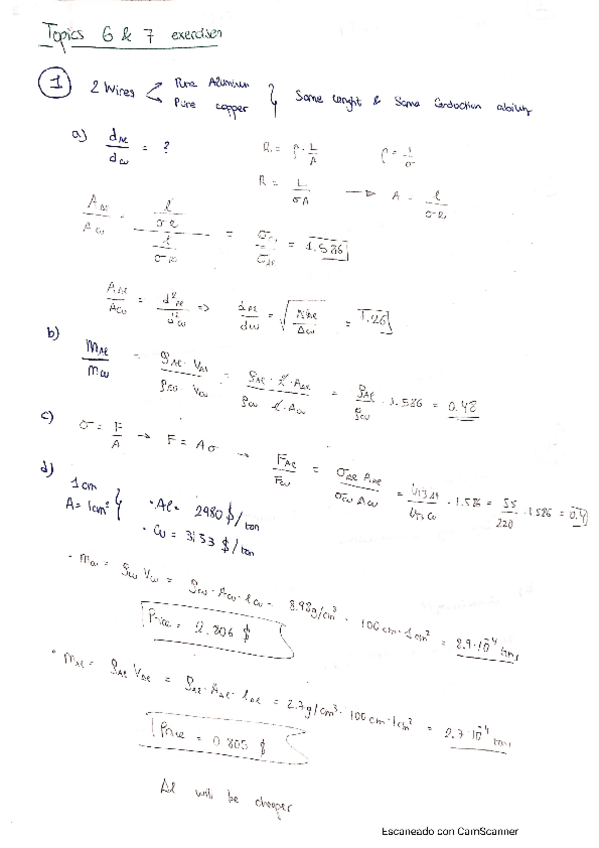 Topics 6 & 7 exercises
① 2 Wires < Pure Aluminum
Pure copper } Same lenght & Same Conduction ability
a) d_Al / d_Cu = ?
R = ρ · L/A
ρ = 1/σ
R = L/σA → A = l/σR
A_Al / A_Cu = (l/σR) / (l/σR) = σ_Cu / σ_Al = 1.586
A_Al / A_Cu = d²_Al / d²_Cu => d_Al / d_Cu = √(A_Al / A_Cu) = 1.26
b) m_Al / m_Cu = ρ_Al · V_Al / ρ_Cu · V_Cu = ρ_Al · l · A_Al / ρ_Cu · l · A_Cu = ρ_Al / ρ_Cu · 1.586 = 0.48
c) σ = F/A → F = A σ → F_Al / F_Cu = σ_Al A_Al / σ_Cu A_Cu = · 1.586 = 55/220 · 1.586 = 0.4
d) 1 cm
A = 1cm² } · Al = 2980 $/ton
· Cu = $/ton
· m_Cu = ρ_Cu V_Cu = ρ_Cu · A_Cu · l_Cu = 8.98 g/cm³ · 100 cm · 1 cm² = 8.9 · 10⁻⁴ tons
Price = 12.806 $
· m_Al = ρ_Al V_Al = ρ_Al · A_Al · l_Al = 2.7 g/cm³ · 100 cm · 1 cm² = 2.7 · 10⁻⁴ tons
Price = 0.805 $
Al will be cheaper
Escaneado con CamScanner